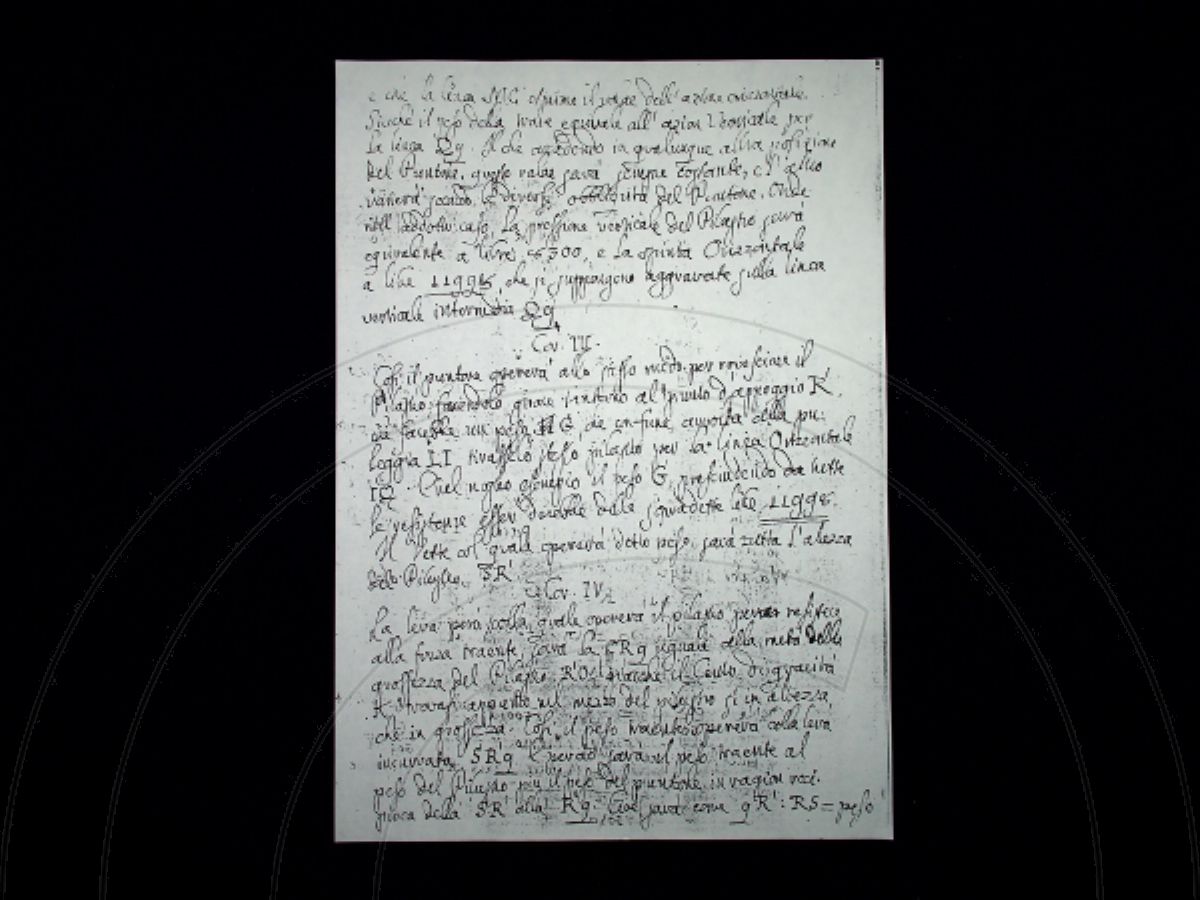 e che la linea MG esprima il valore dell' azione orizontale.
Sicché il peso della trave equivale all' azion Verticale per
la linea Qq. Il che accadendo in qualunque altra posizione
del Puntone, questo valor sarà sempre costante, e l' altro
varierà secondo le diverse obbliquità del Puntone. Onde
nell' addotto caso, La pressione verticale del Pilastro sarà
equivalente a libre 5300, e La spinta Orizontale
a libre 11995, che si suppongono aggravate sulla linea
verticale intermedia Qq
Cor. III.
Così il puntone opererà allo stesso modo per rovesciare il
Pilastro facendolo girare intorno al punto d'appoggio R,
che farebbe un peso G, che con fune, apposta alla pu-
leggia LI tirasse lo stesso pilastro per la linea Orizontale
IQ. Quel nostro esempio il peso G, prescindendo da tutte
le resistenze esser dovrebbe delle sopradette libre 11995.
Il Vette col quale opererà detto peso, sarà tutta l'altezza
del Pilastro SR.
Cor. IV.
La leva però colla quale opererà il pilastro per resistere
alla forza traente, sarà la Rq eguale alla metà della
grossezza del Pilastro, giacché il Centro di gravità
trovasi nel mezzo del pilastro sì in altezza,
che in grossezza. Così il peso traente opererà colla leva
incurvata SRq E perciò sarà il peso traente al
peso del Pilastro più il peso del puntone in ragion reci-
proca della SR alla Rq. Cioè sarà come qR : RS = peso